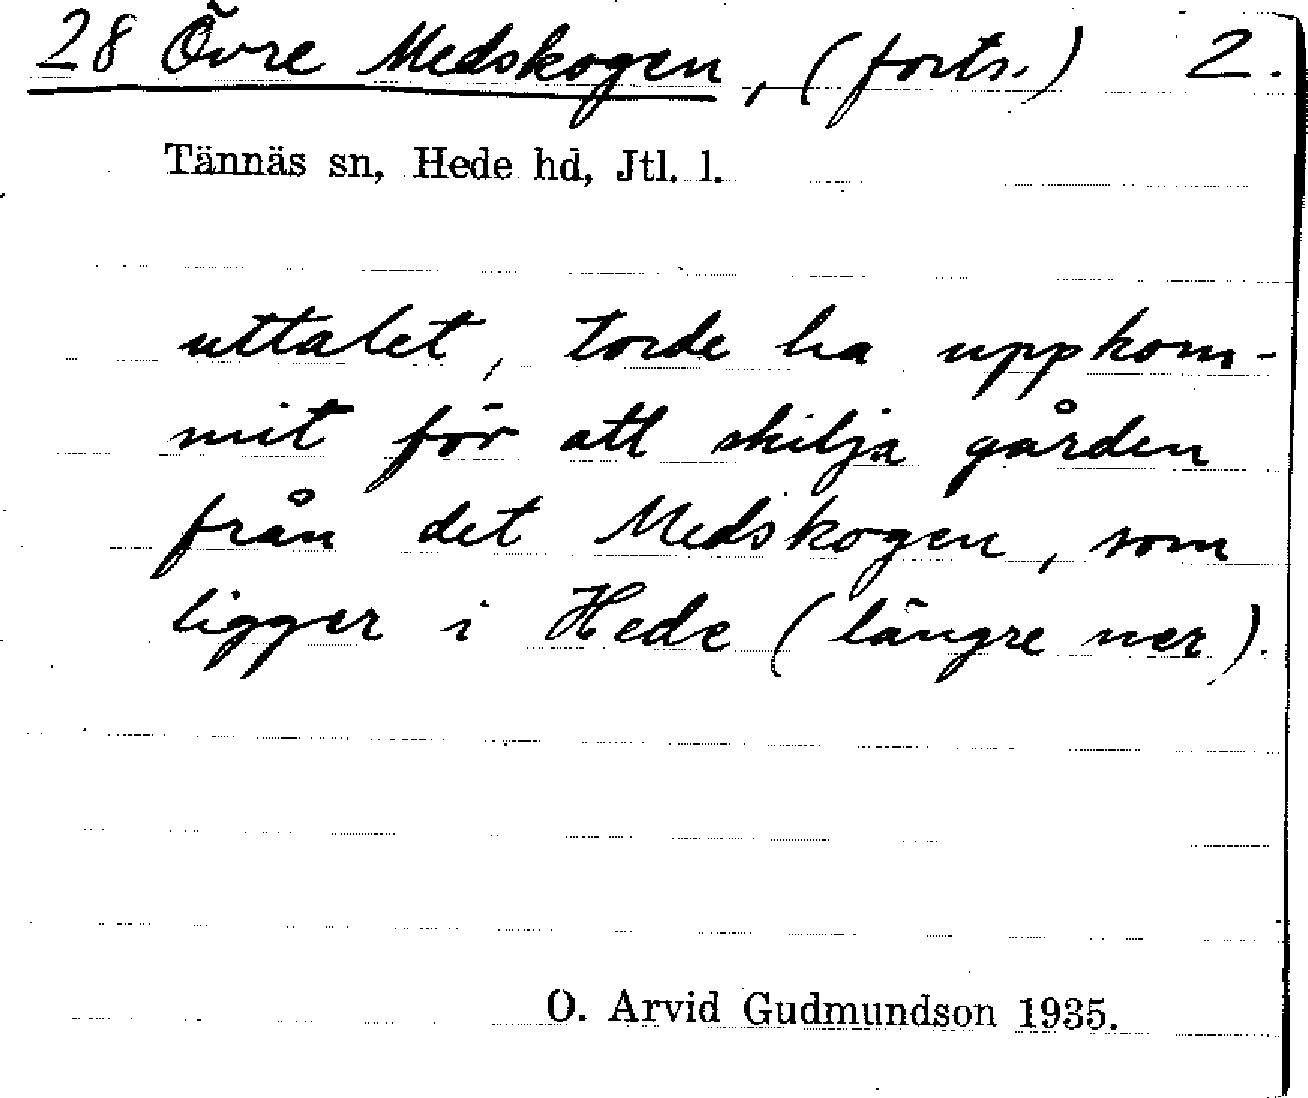 28 Övre Medskogen, (forts.) 2.
Tännäs sn, Hede hd, Jtl. l.
uttalet, torde ha uppkom-
mit för att skilja gården
från det Medskogen, som
ligger i Hede (längre ner).
O. Arvid Gudmundson 1935.